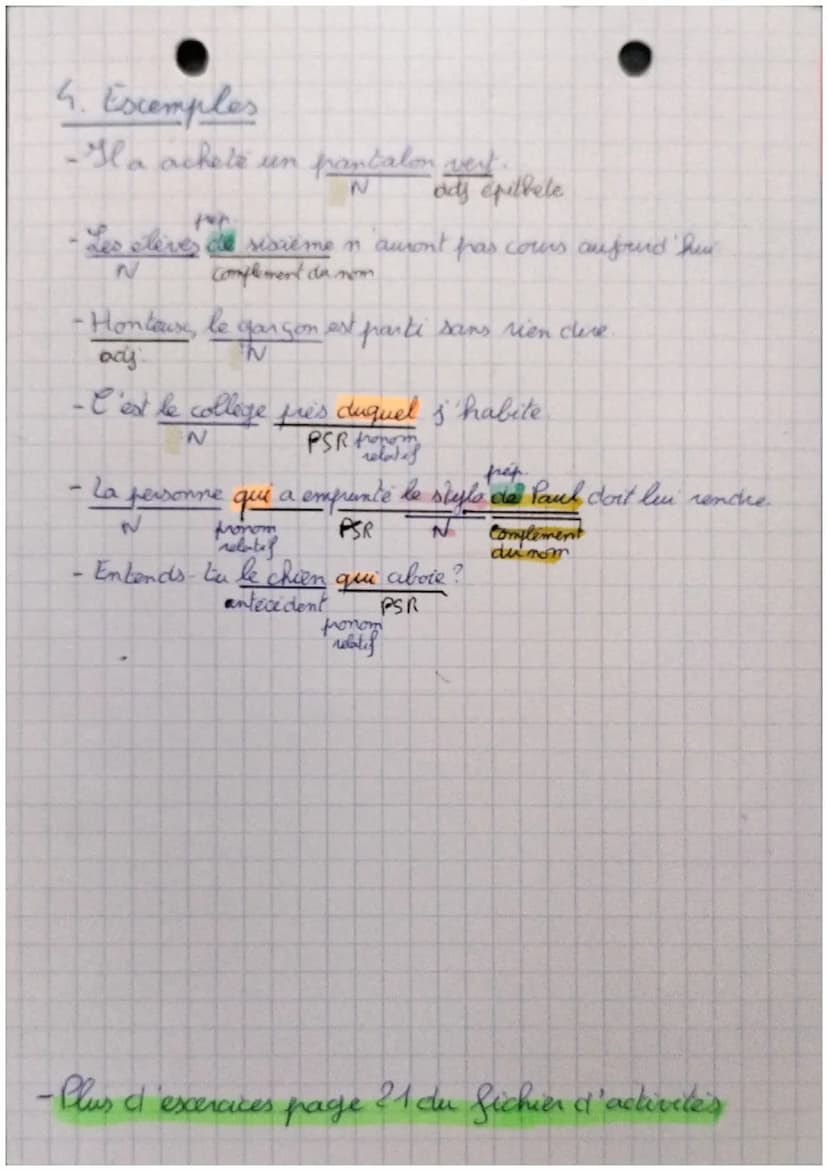 4. Exemples
- Il a acheté un pantalon vert.
N adj épithète
prép.
- Les élèves de sixième n'auront pas cours aujourd'hui
N complément du nom
- Honteux, le garçon est parti sans rien dire.
adj. N
- C'est le collège près duquel j'habite
N PSR pronom
relatif
prép.
- La personne qui a emprunté le stylo de Paul doit lui rendre.
N pronom PSR N Complément
relatif du nom
- Entends-tu le chien qui aboie ?
antécédent PSR
pronom
relatif
- Plus d'exercices page 21 du fichier d'activités